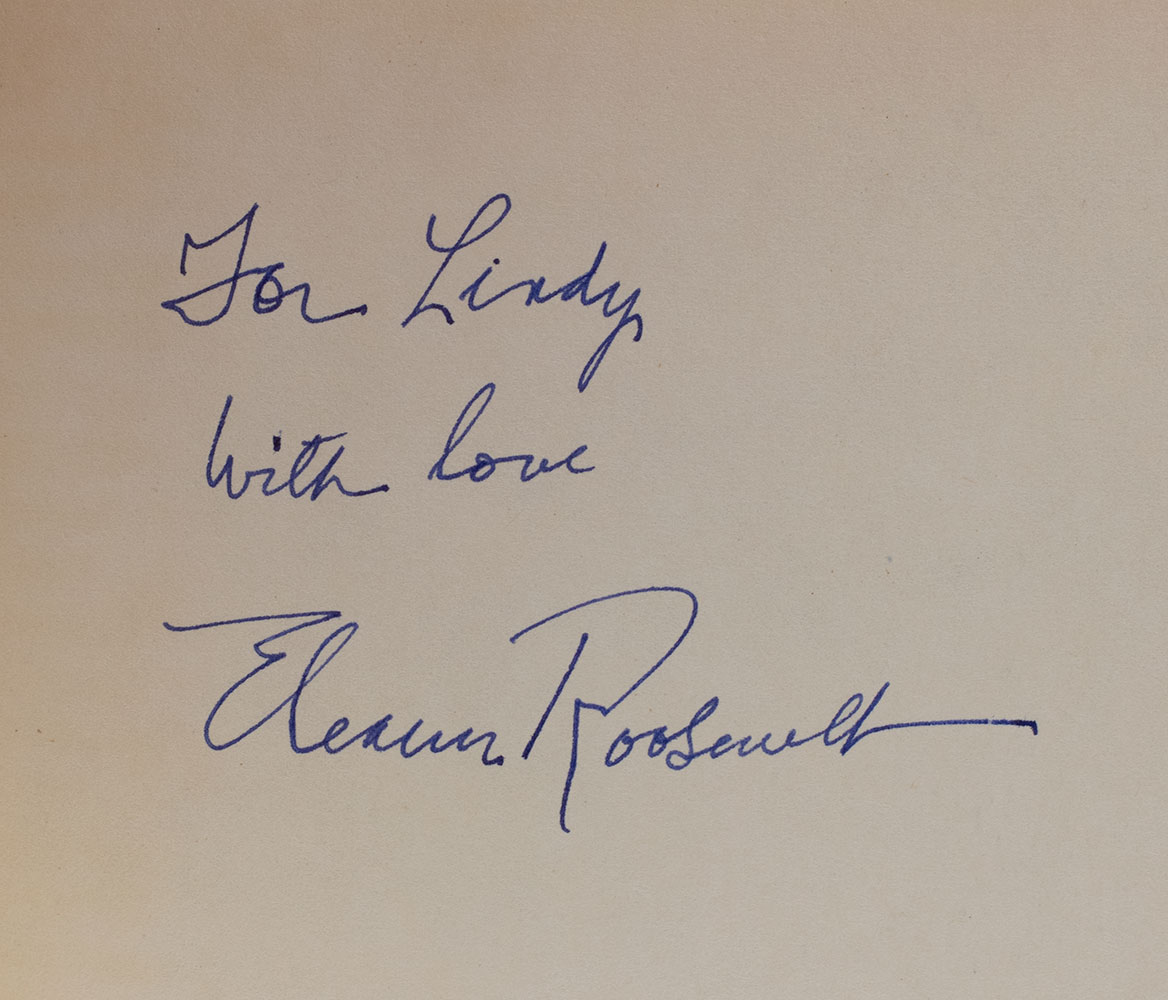 For Lindy
With love
Eleanor Roosevelt